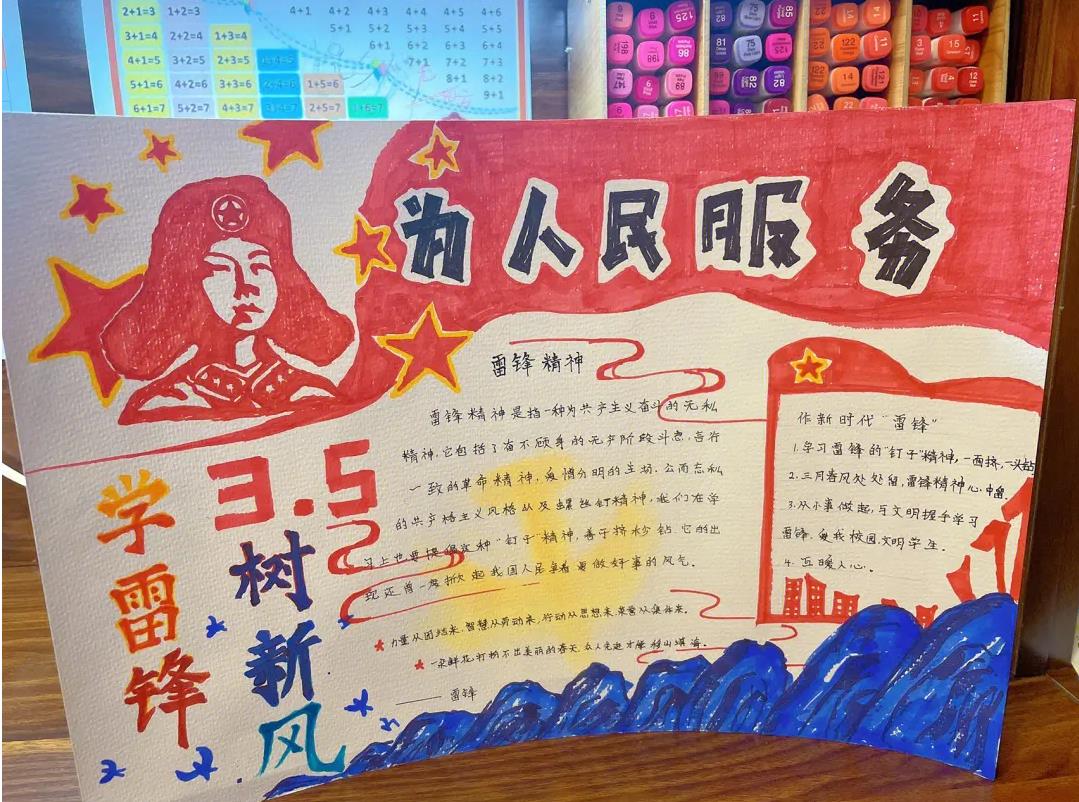 2+1=3 1+2=3 4+1 4+2 4+3 4+4 4+5 4+6
3+1=4 2+2=4 1+3=4 5+1 5+2 5+3 5+4 5+5
4+1=5 3+2=5 2+3=5 6+1 6+2 6+3 6+4
5+1=6 4+2=6 3+3=6 1+5=6 7+1 7+2 7+3
8+1 8+2
6+1=7 5+2=7 4+3=7 2+5=7 1+6=7 9+1
为人民服务
雷锋精神
雷锋精神是指一种为共产主义奋斗的无私
精神,它包括了奋不顾身的无产阶级斗志,言行
一致的革命精神,爱憎分明的立场,公而忘私
的共产主义风格以及螺丝钉精神,我们在学
习上也要提倡这种“钉子”精神,善于挤和钻.它的出
现还曾一度掀起我国人民争着要做好事的风气.
力量从团结来,智慧从劳动来,行动从思想来,荣誉从集体来.
一朵鲜花打扮不出美丽的春天,众人先进才能移山填海.
—— 雷锋
作新时代“雷锋”
1.学习雷锋的“钉子”精神,一面挤,一头钻
2.三月春风处处留,雷锋精神心中留.
3.从小事做起,与文明握手学习
雷锋,爱我校园,文明学生.
4. 暖人心.
3.5
学雷锋
树新风